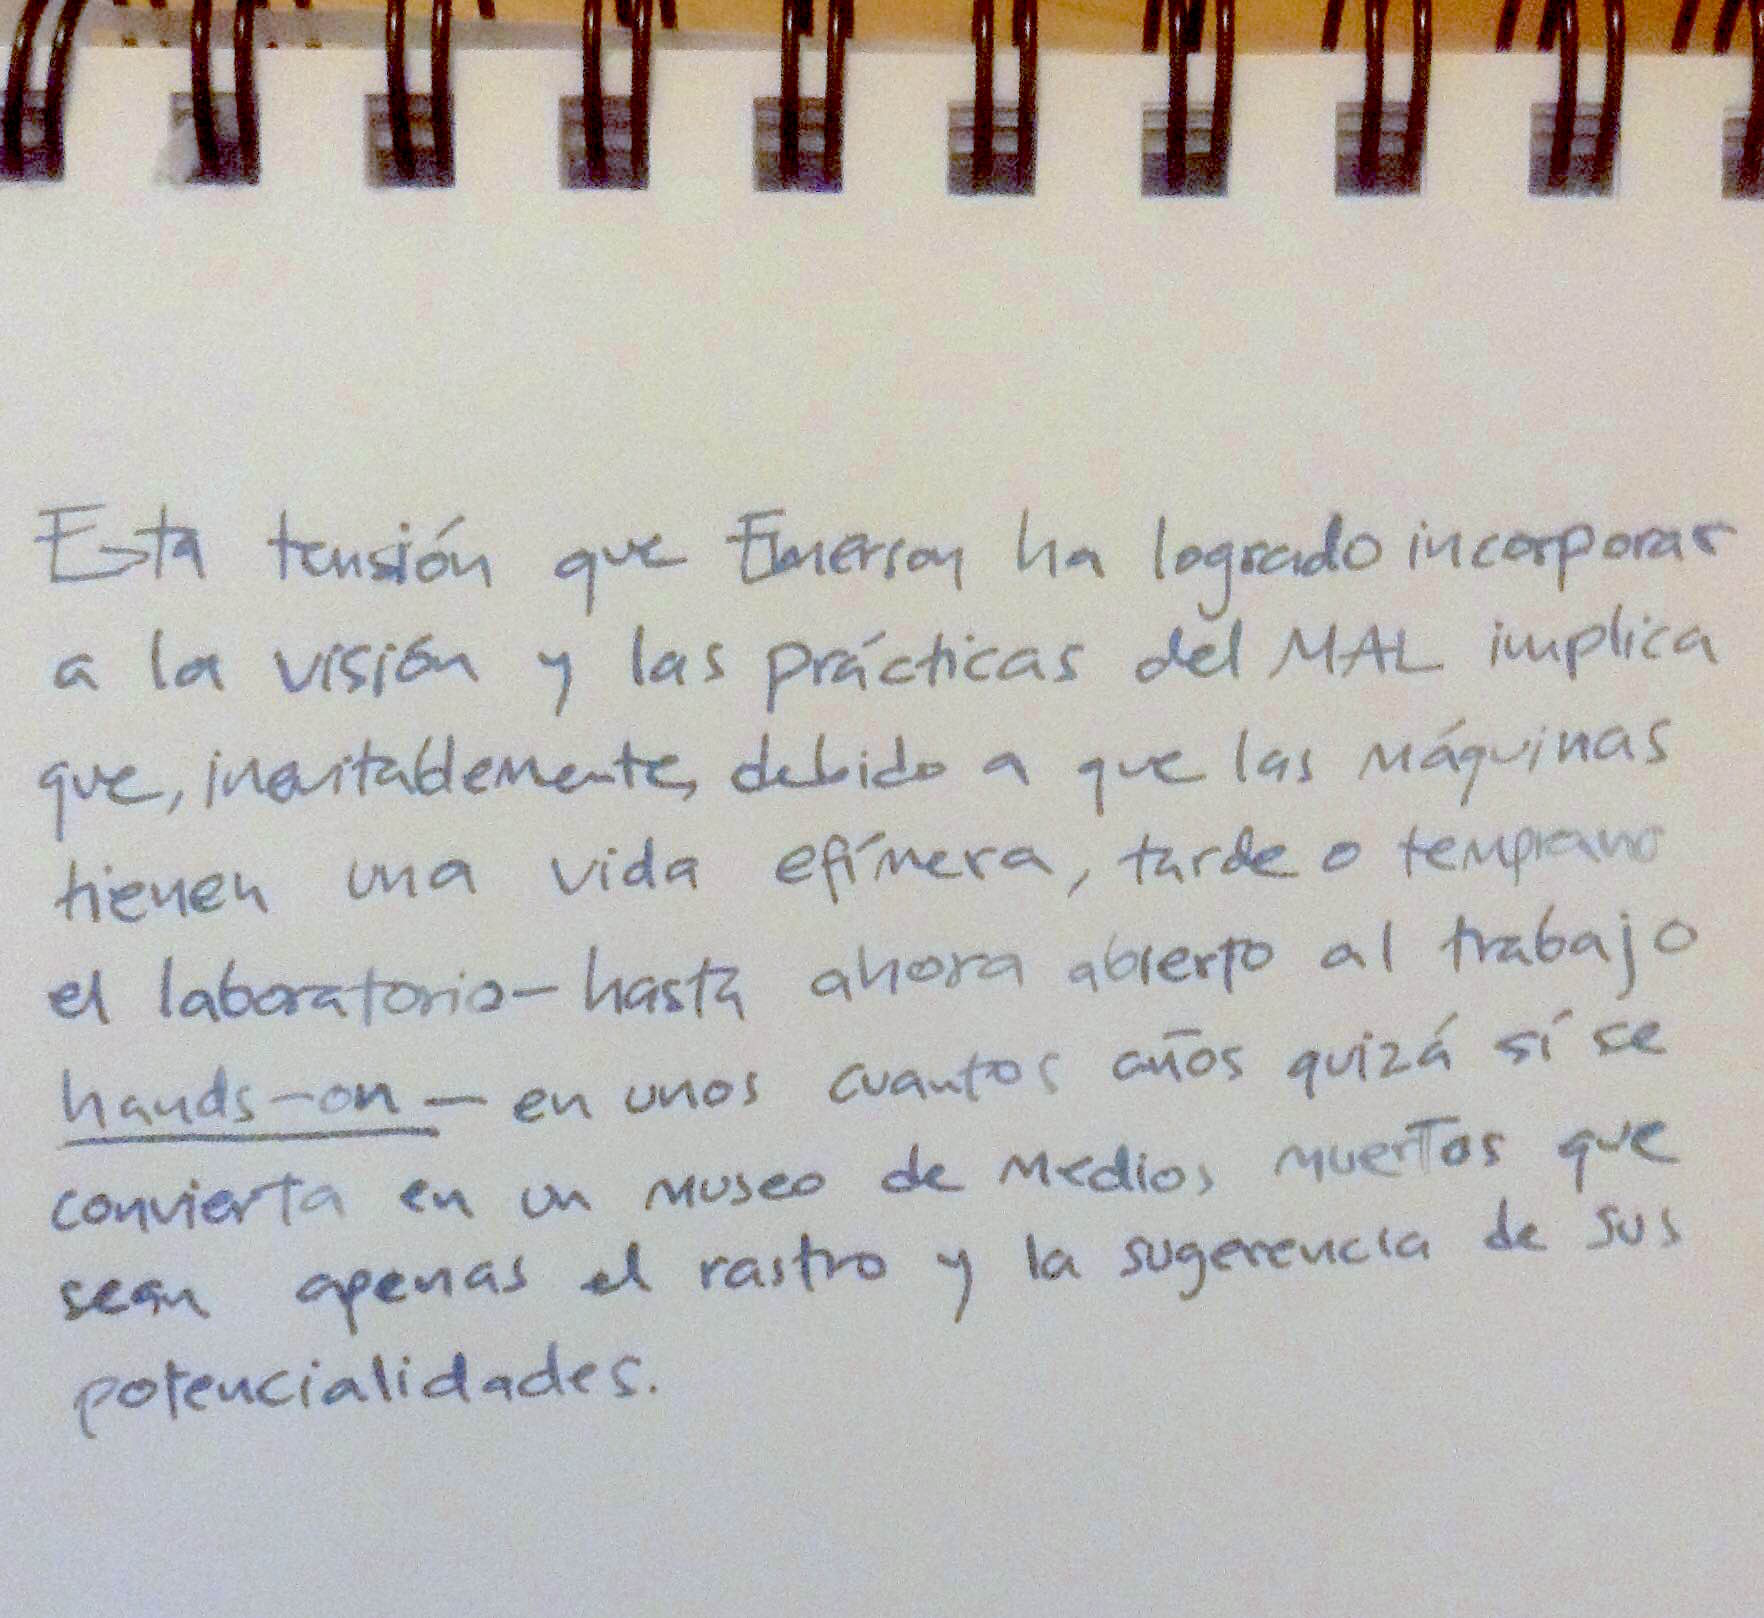 Esta tensión que Emerson ha logrado incorporar
a la visión y las prácticas del MAL implica
que, inevitablemente, debido a que las máquinas
tienen una vida efímera, tarde o temprano
el laboratorio – hasta ahora abierto al trabajo
hands-on – en unos cuantos años quizá sí se
convierta en un museo de medios muertos que
sean apenas el rastro y la sugerencia de sus
potencialidades.